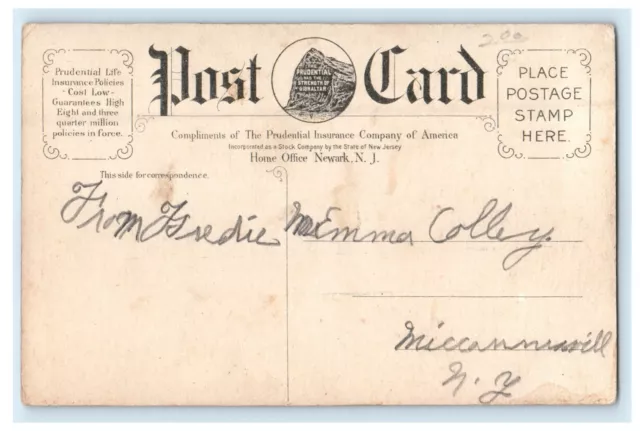 2.00
Prudential Life
Insurance Policies
- Cost Low -
Guarantees High
Eight and three
quarter million
policies in force.
Post Card
PRUDENTIAL
HAS THE
STRENGTH OF
GIBRALTAR
PLACE
POSTAGE
STAMP
HERE.
Compliments of The Prudential Insurance Company of America
Incorporated as a Stock Company by the State of New Jersey
Home Office Newark, N. J.
This side for correspondence.
From Fredie
Emma Colley.
N. Y